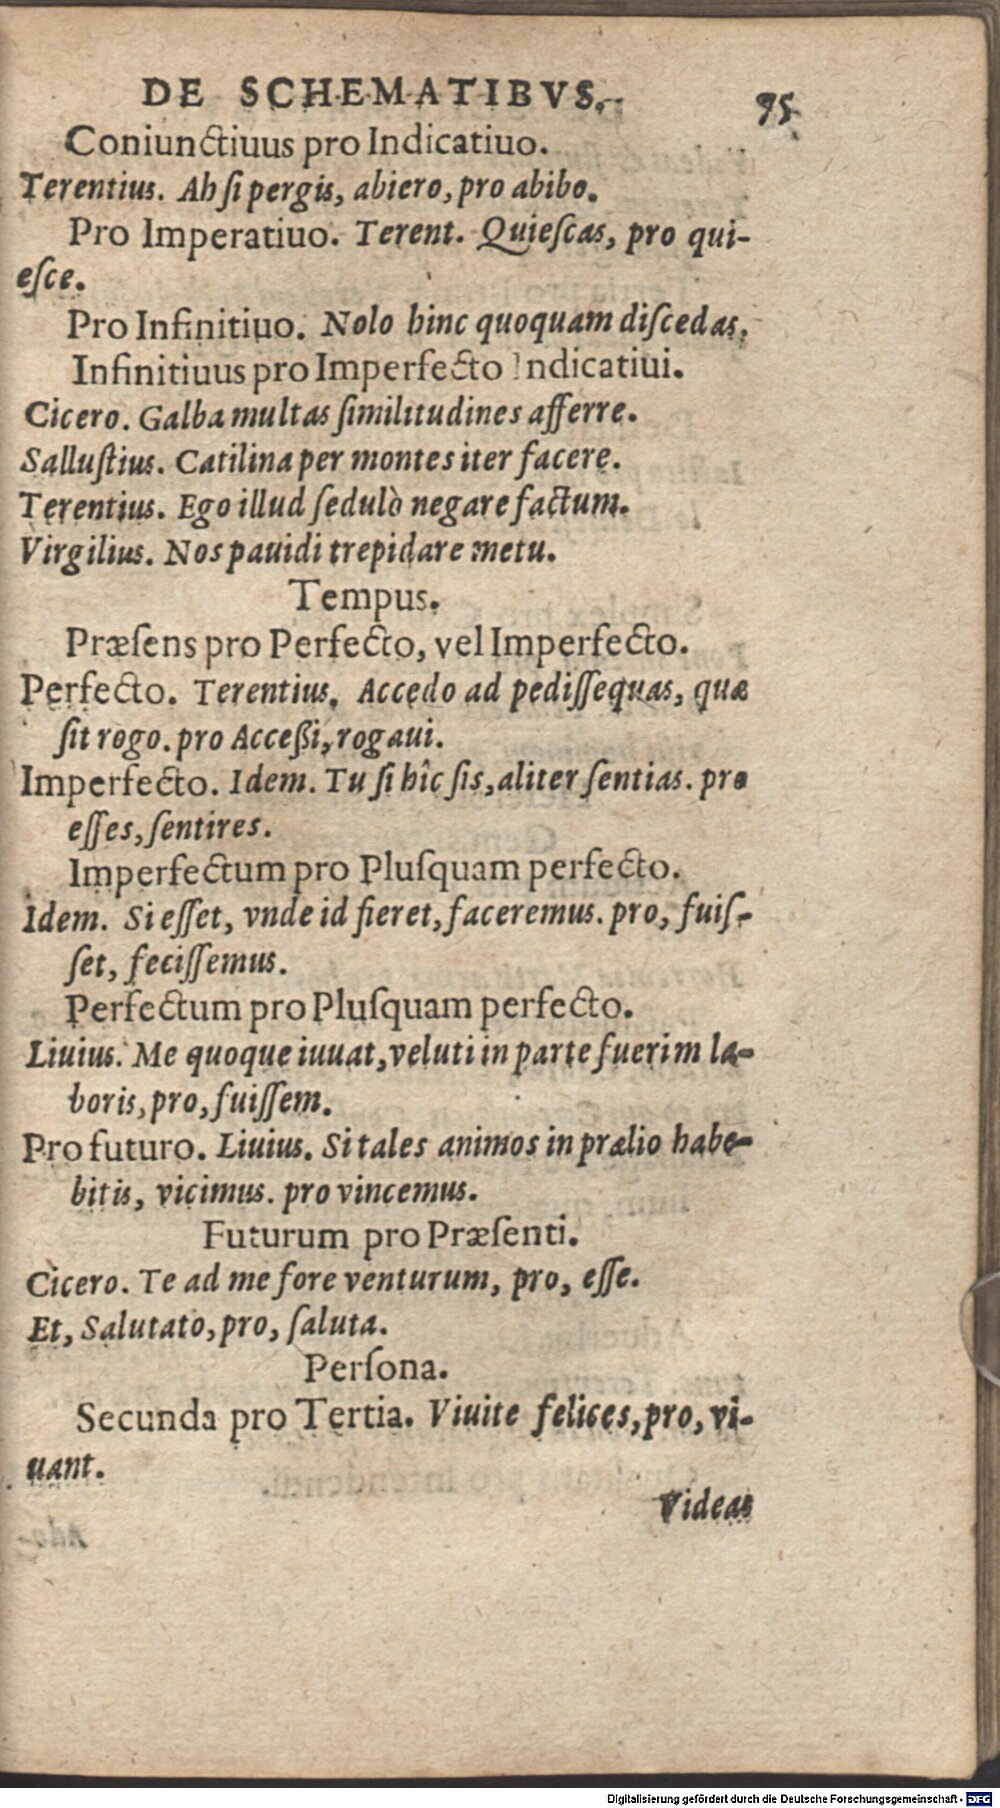 DE SCHEMATIBVS. 95
Coniunctiuus pro Indicatiuo.
Terentius. Ah ſi pergis, abiero, pro abibo.
Pro Imperatiuo. Terent. Quieſcas, pro qui-
eſce.
Pro Infinitiuo. Nolo hinc quoquam diſcedas.
Infinitiuus pro Imperfecto Indicatiui.
Cicero. Galba multas ſimilitudines afferre.
Salluſtius. Catilina per montes iter facere.
Terentius. Ego illud ſedulò negare factum.
Virgilius. Nos pauidi trepidare metu.
Tempus.
Præſens pro Perfecto, vel Imperfecto.
Perfecto. Terentius. Accedo ad pediſſequas, quæ
ſit rogo. pro Acceßi, rogaui.
Imperfecto. Idem. Tu ſi hîc ſis, aliter ſentias. pro
eſſes, ſentires.
Imperfectum pro Pluſquam perfecto.
Idem. Si eſſet, vnde id fieret, faceremus. pro, fuiſ-
ſet, feciſſemus.
Perfectum pro Pluſquam perfecto.
Liuius. Me quoque iuuat, veluti in parte fuerim la-
boris, pro, fuiſſem.
Pro futuro. Liuius. Si tales animos in prælio habe-
bitis, vicimus. pro vincemus.
Futurum pro Præſenti.
Cicero. Te ad me fore venturum, pro, eſſe.
Et, Salutato, pro, ſaluta.
Perſona.
Secunda pro Tertia. Viuite felices, pro, vi-
uant.
Videas
Digitalisierung gefördert durch die Deutsche Forschungsgemeinschaft - DFG